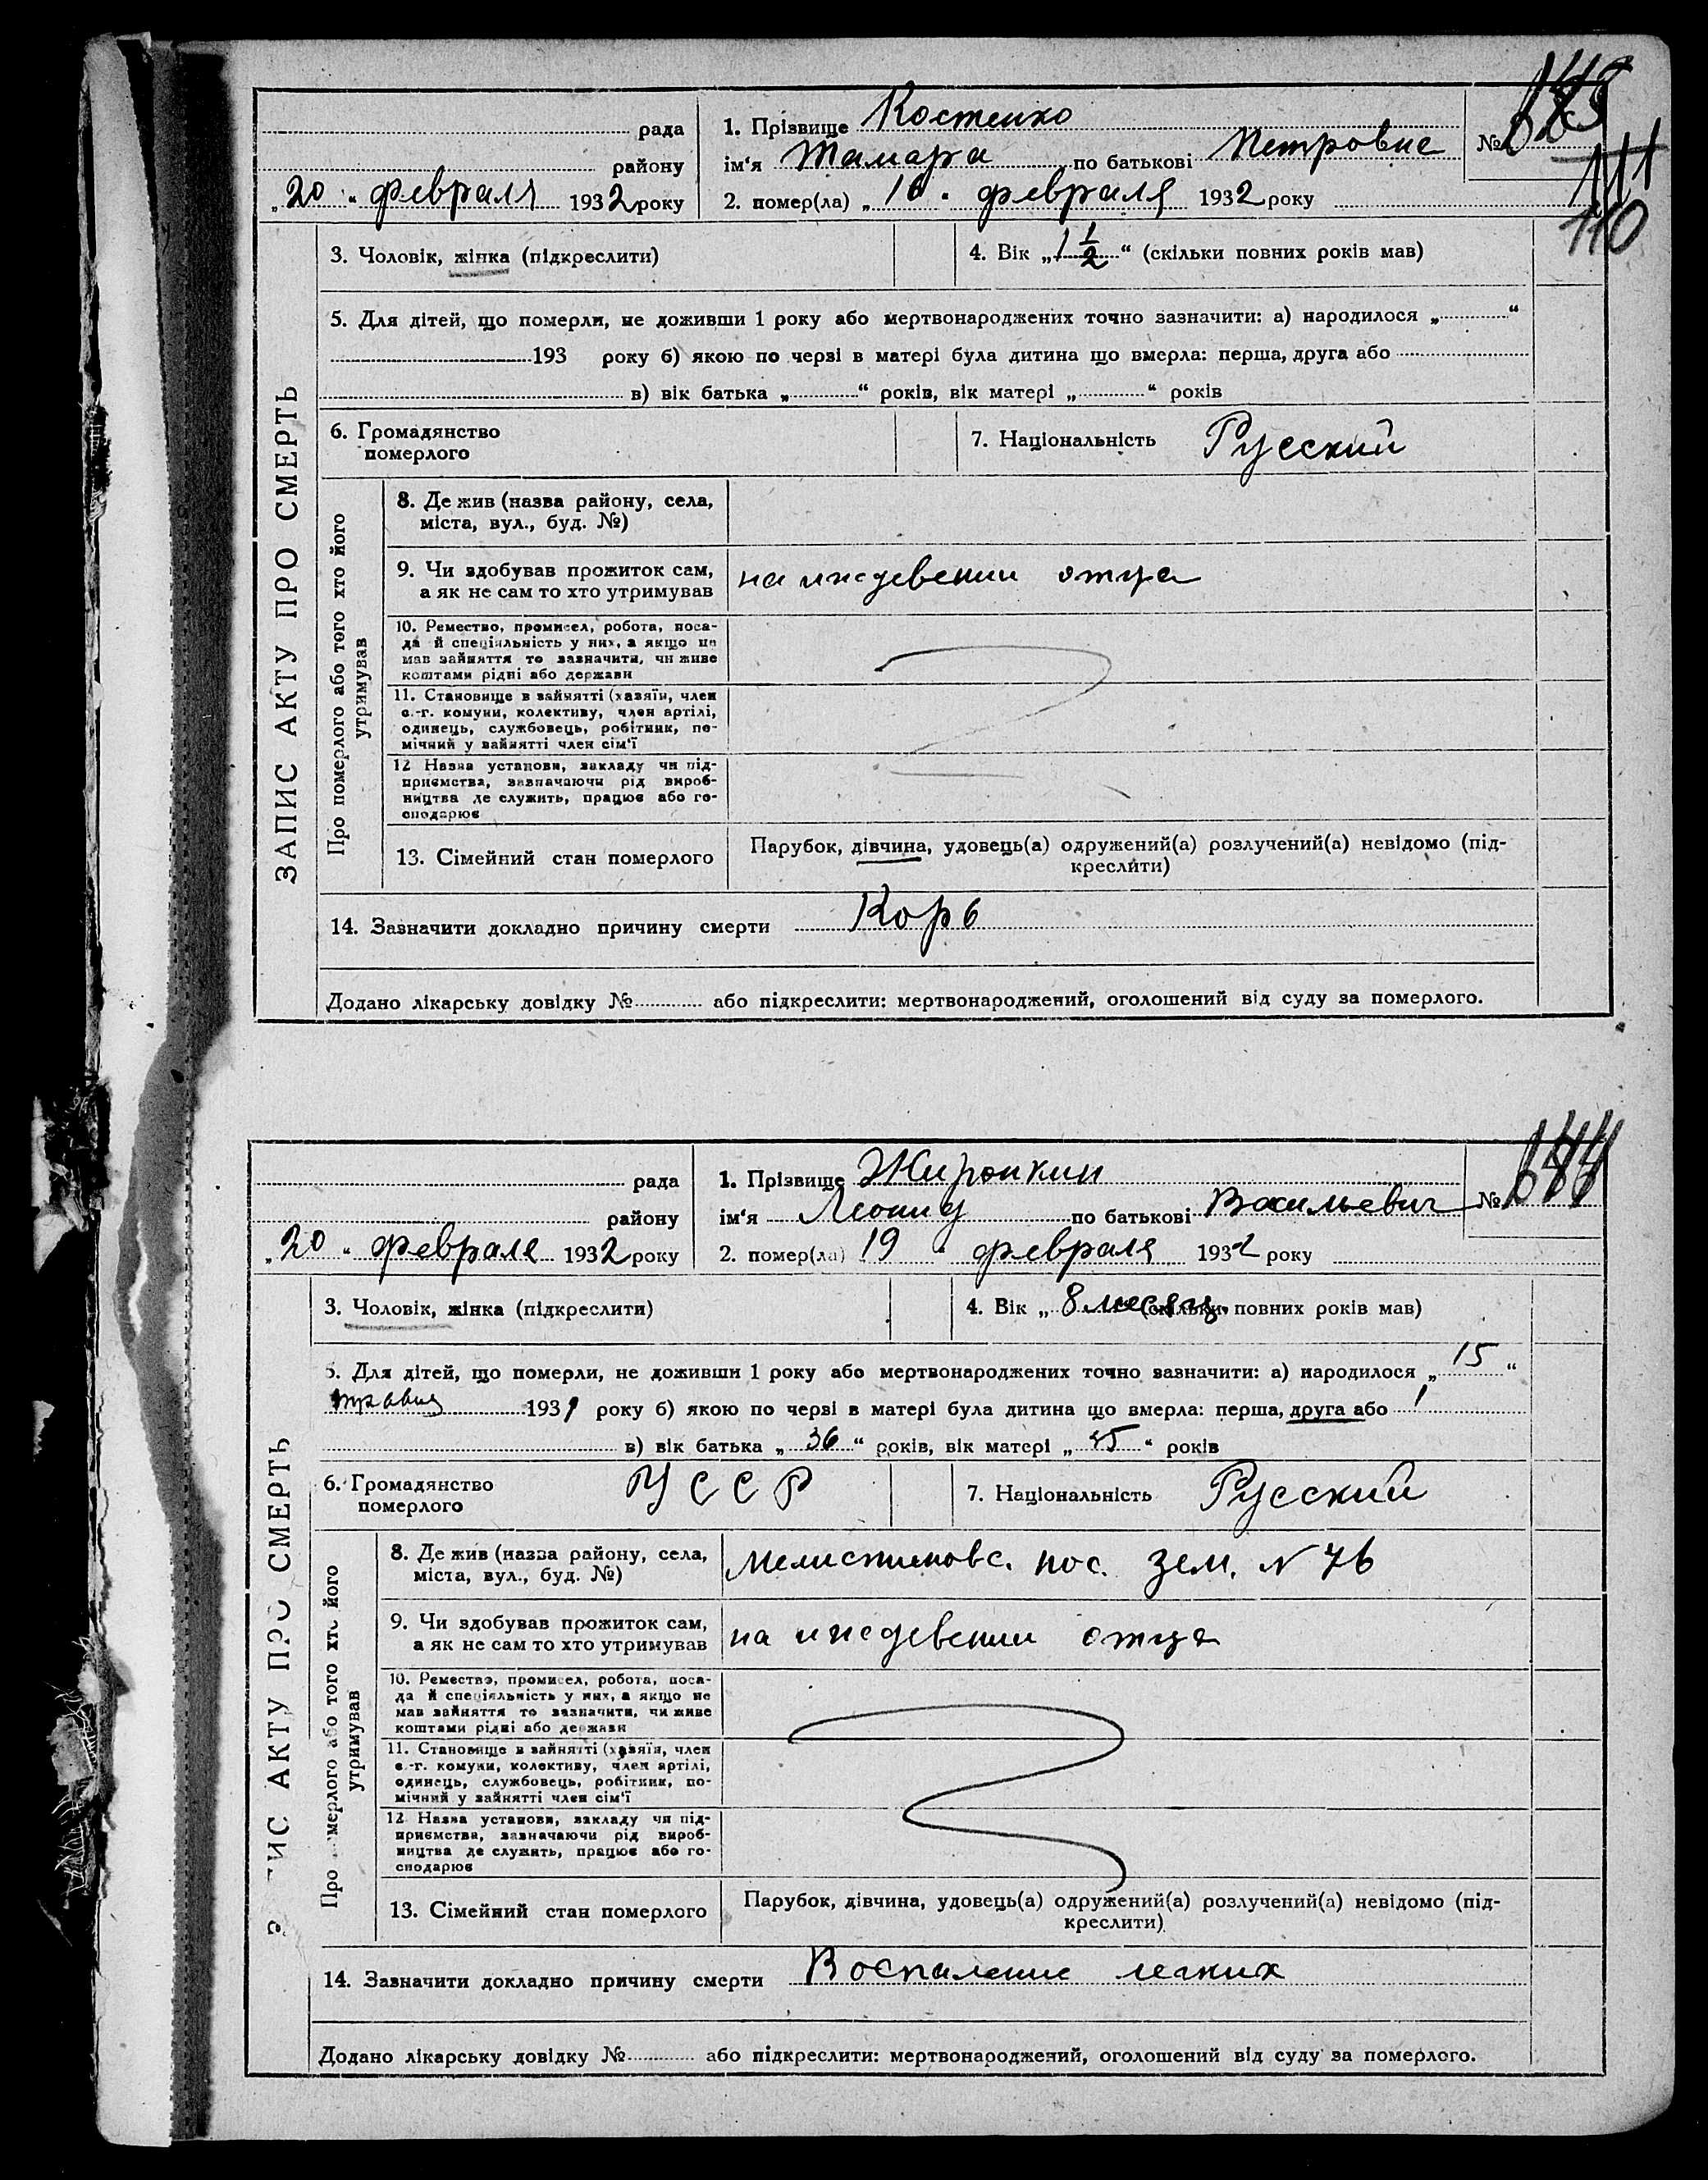 рада
району
„20“ февраля 1932 року
1. Прізвище Костенко
ім‘я Тамара по батькові Петровна
2. помер(ла) „16“ февраля 1932 року
№
111
110
ЗАПИС АКТУ ПРО СМЕРТЬ
3. Чоловік, жінка (підкреслити)
4. Вік „1 1/2“ (скільки повних років мав)
5. Для дітей, що померли, не доживши 1 року або мертвонароджених точно зазначити: а) народилося „ “
193 року б) якою по черзі в матері була дитина що вмерла: перша, друга або
в) вік батька „ “ років, вік матері „ “ років
6. Громадянство
померлого
7. Національність Русский
Про померлого або того хто його
утримував
8. Де жив (назва району, села,
міста, вул., буд. №)
9. Чи здобував прожиток сам,
а як не сам то хто утримував
на иждевении отца
10. Ремество, промисел, робота, поса-
да й спеціяльність у них, а якщо не
мав зайняття то зазначити, чи живе
коштами рідні або держави
11. Становище в зайнятті (хазяїн, член
с.-г. комуни, колективу, член артілі,
одинець, службовець, робітник, по-
мічний у зайнятті член сім‘ї
12 Назва установи, закладу чи під-
приємства, зазначаючи рід вироб-
ництва де служить, працює або го-
сподарює
13. Сімейний стан померлого
Парубок, дівчина, удовець(а) одружений(а) розлучений(а) невідомо (під-
креслити)
14. Зазначити докладно причину смерти Корь
Додано лікарську довідку № або підкреслити: мертвонароджений, оголошений від суду за померлого.
рада
району
„20“ февраля 1932 року
1. Прізвище Жиронкин
ім‘я Леонид по батькові Васильевич
2. помер(ла) 19 “ февраля 1932 року
№ 144
ИС АКТУ ПРО СМЕРТЬ
3. Чоловік, жінка (підкреслити)
4. Вік „ 8 месяц. (скільки повних років мав)
5. Для дітей, що померли, не доживши 1 року або мертвонароджених точно зазначити: а) народилося „15“
травня 1931 року б) якою по черзі в матері була дитина що вмерла: перша, друга або
в) вік батька „36“ років, вік матері „ 35 “ років
6. Громадянство
померлого
УССР
7. Національність Русский
Про померлого або того хто його
утримував
8. Де жив (назва району, села,
міста, вул., буд. №)
пос. зем. N 76
9. Чи здобував прожиток сам,
а як не сам то хто утримував
на иждевении отца
10. Ремество, промисел, робота, поса-
да й спеціяльність у них, а якщо не
мав зайняття то зазначити, чи живе
коштами рідні або держави
11. Становище в зайнятті (хазяїн, член
с.-г. комуни, колективу, член артілі,
одинець, службовець, робітник, по-
мічний у зайнятті член сім‘ї
12 Назва установи, закладу чи під-
приємства, зазначаючи рід вироб-
ництва де служить, працює або го-
сподарює
13. Сімейний стан померлого
Парубок, дівчина, удовець(а) одружений(а) розлучений(а) невідомо (під-
креслити)
14. Зазначити докладно причину смерти Воспаление легких
Додано лікарську довідку № або підкреслити: мертвонароджений, оголошений від суду за померлого.